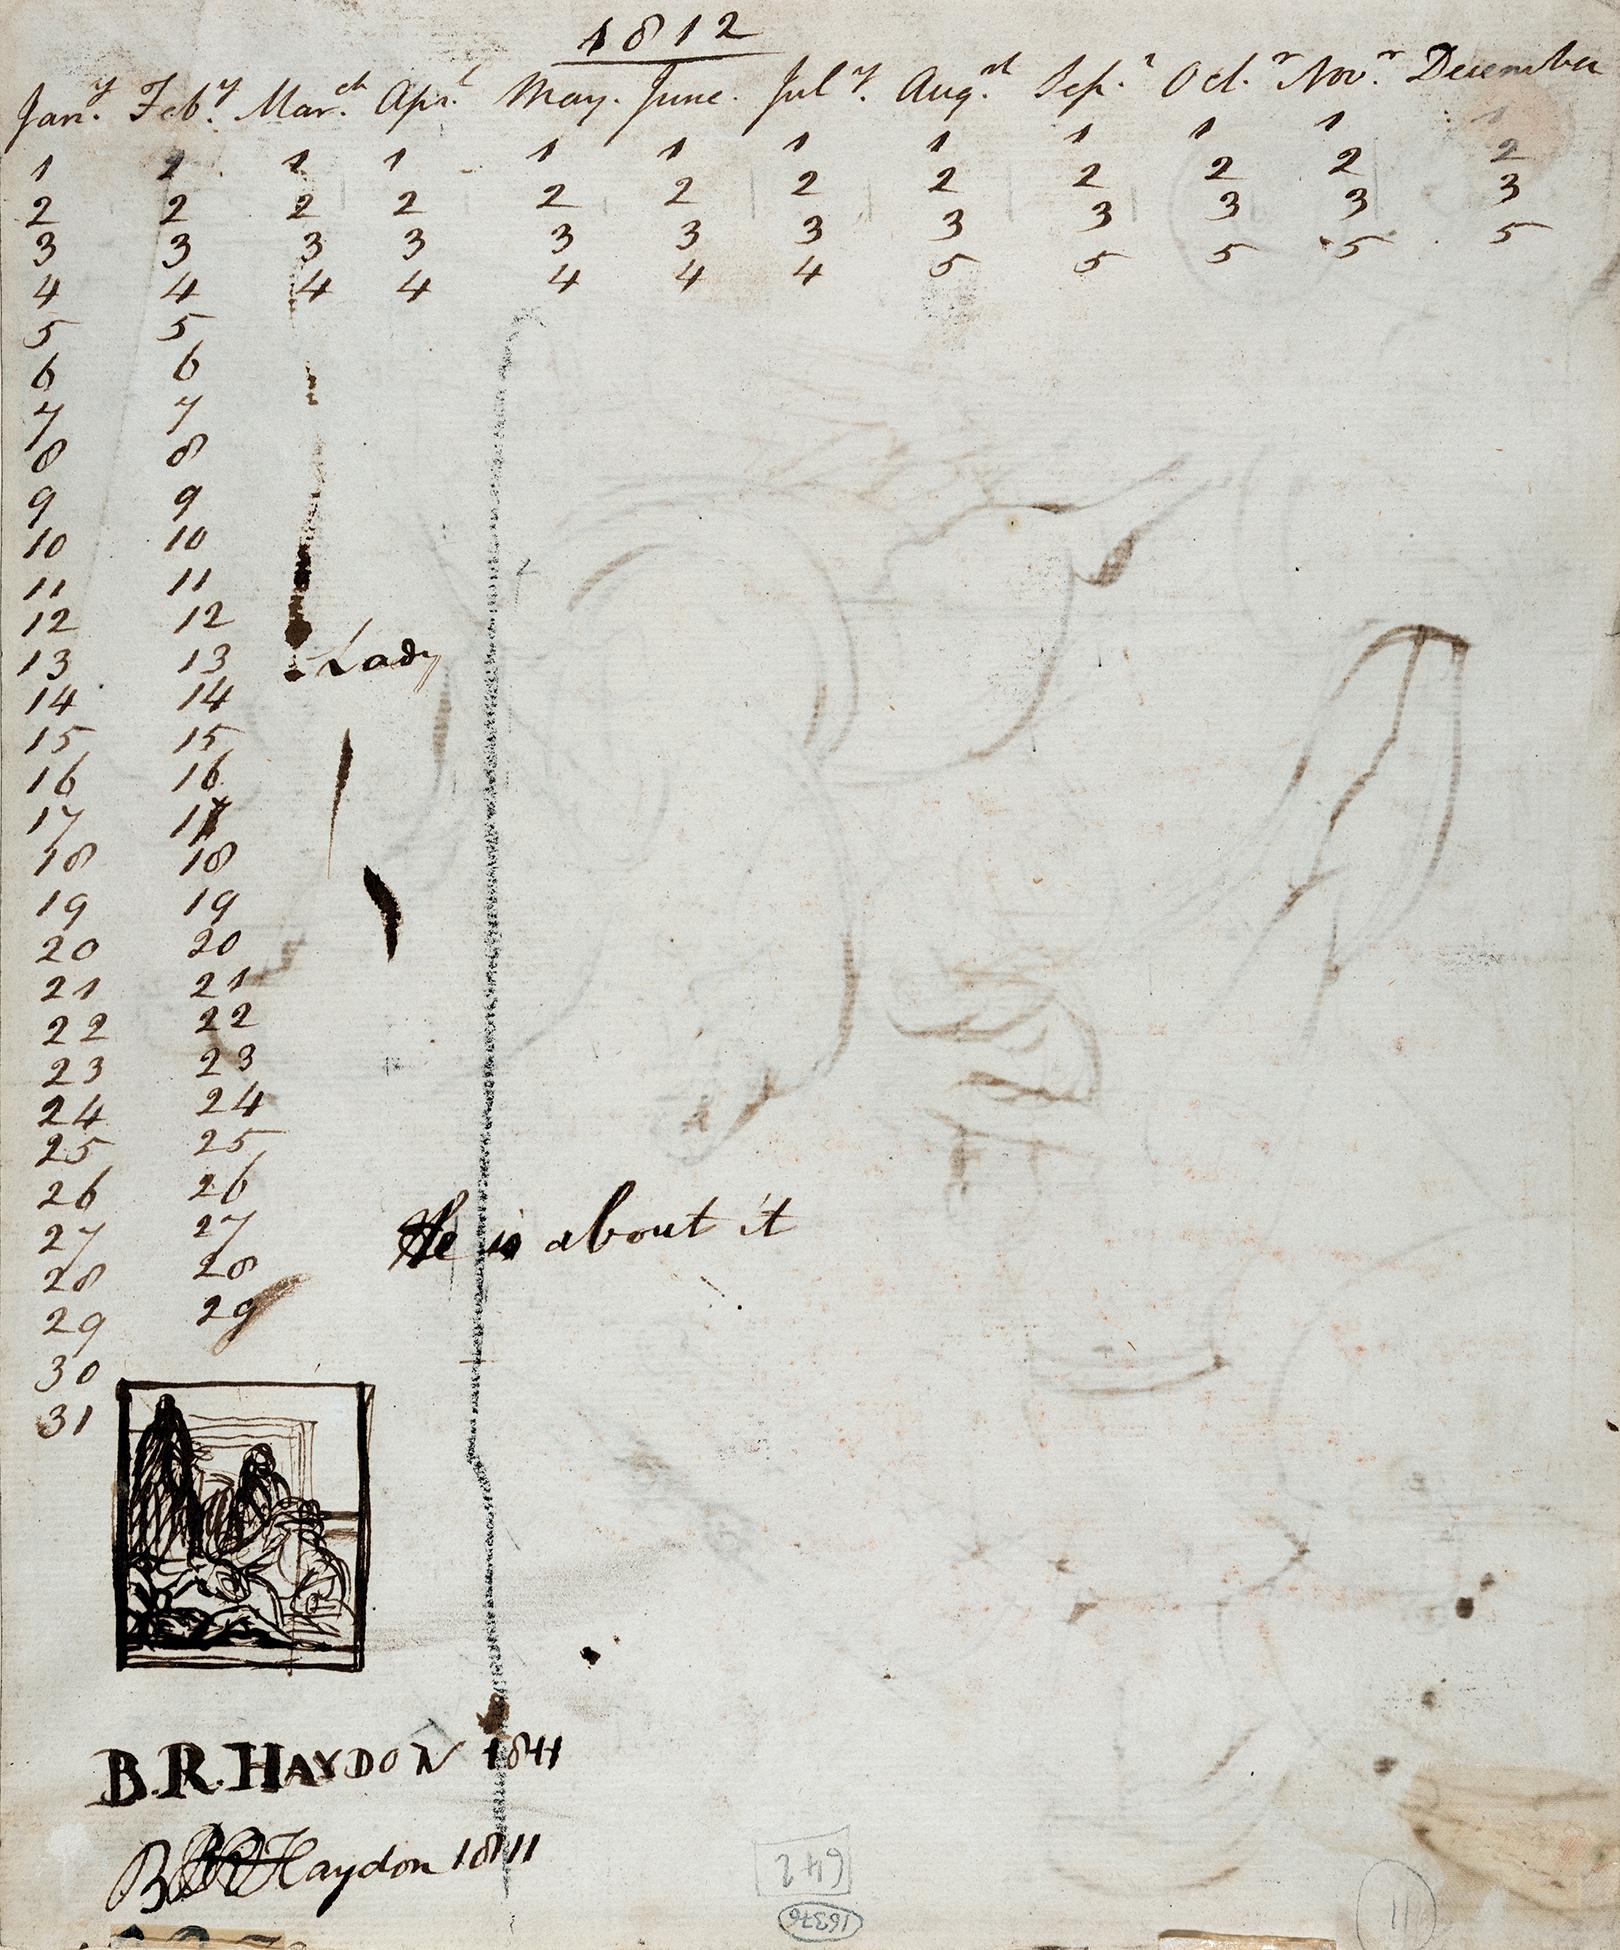 1812
Jan.y Feb.y Mar.ch Apr.l May. June. July. Aug.st Sep.r Oct.r Nov.r December
1 1 1 1 1 1 1 1 1 1 1 1
2 2 2 2 2 2 2 2 2 2 2 2
3 3 3 3 3 3 3 3 3 3 3 3
4 4 4 4 4 4 4 5 5 5 5 5
5 5
6 6
7 7
8 8
9 9
10 10
11 11
12 12
13 13 Lady
14 14
15 15
16 16
17 17
18 18
19 19
20 20
21 21
22 22
23 23
24 24
25 25
26 26
27 27 He is about it
28 28
29 29
30
31
B.R. HAYDON 1841
B R Haydon 1811
642
16376
11